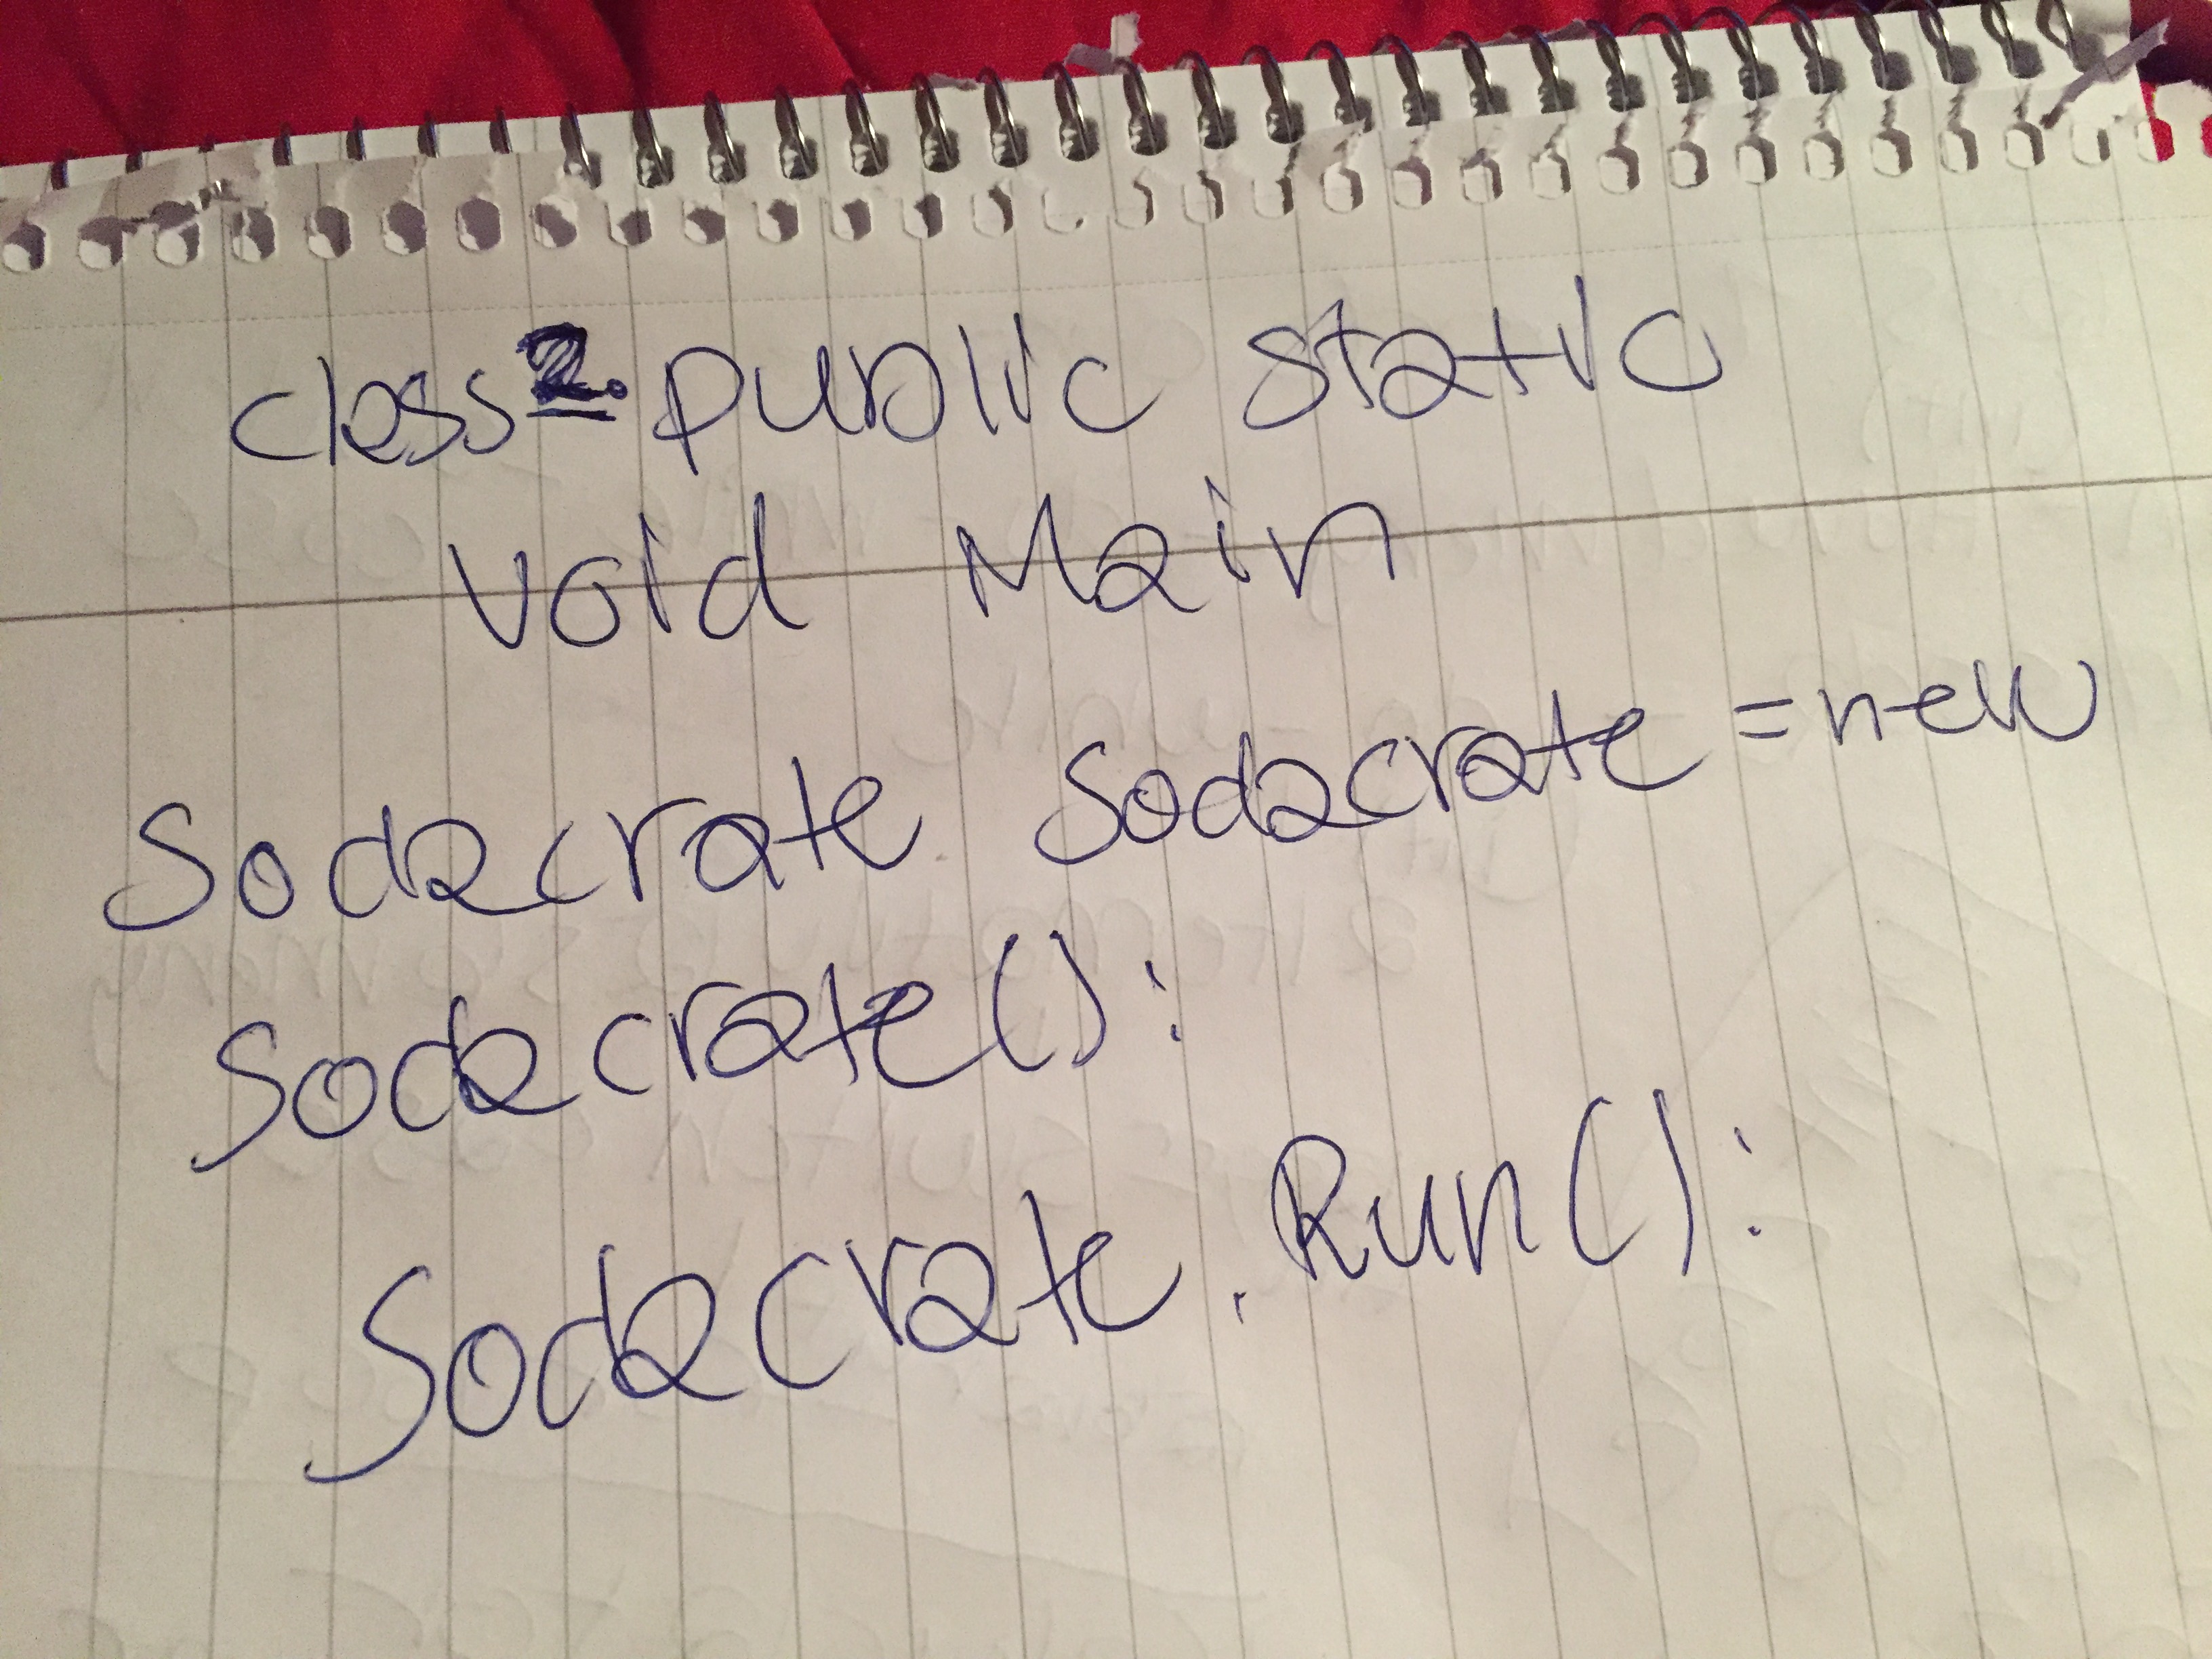 class 2. Public static
void Main
Sodacrate Sodacrate = new
Sodacrate();
Sodacrate.Run();